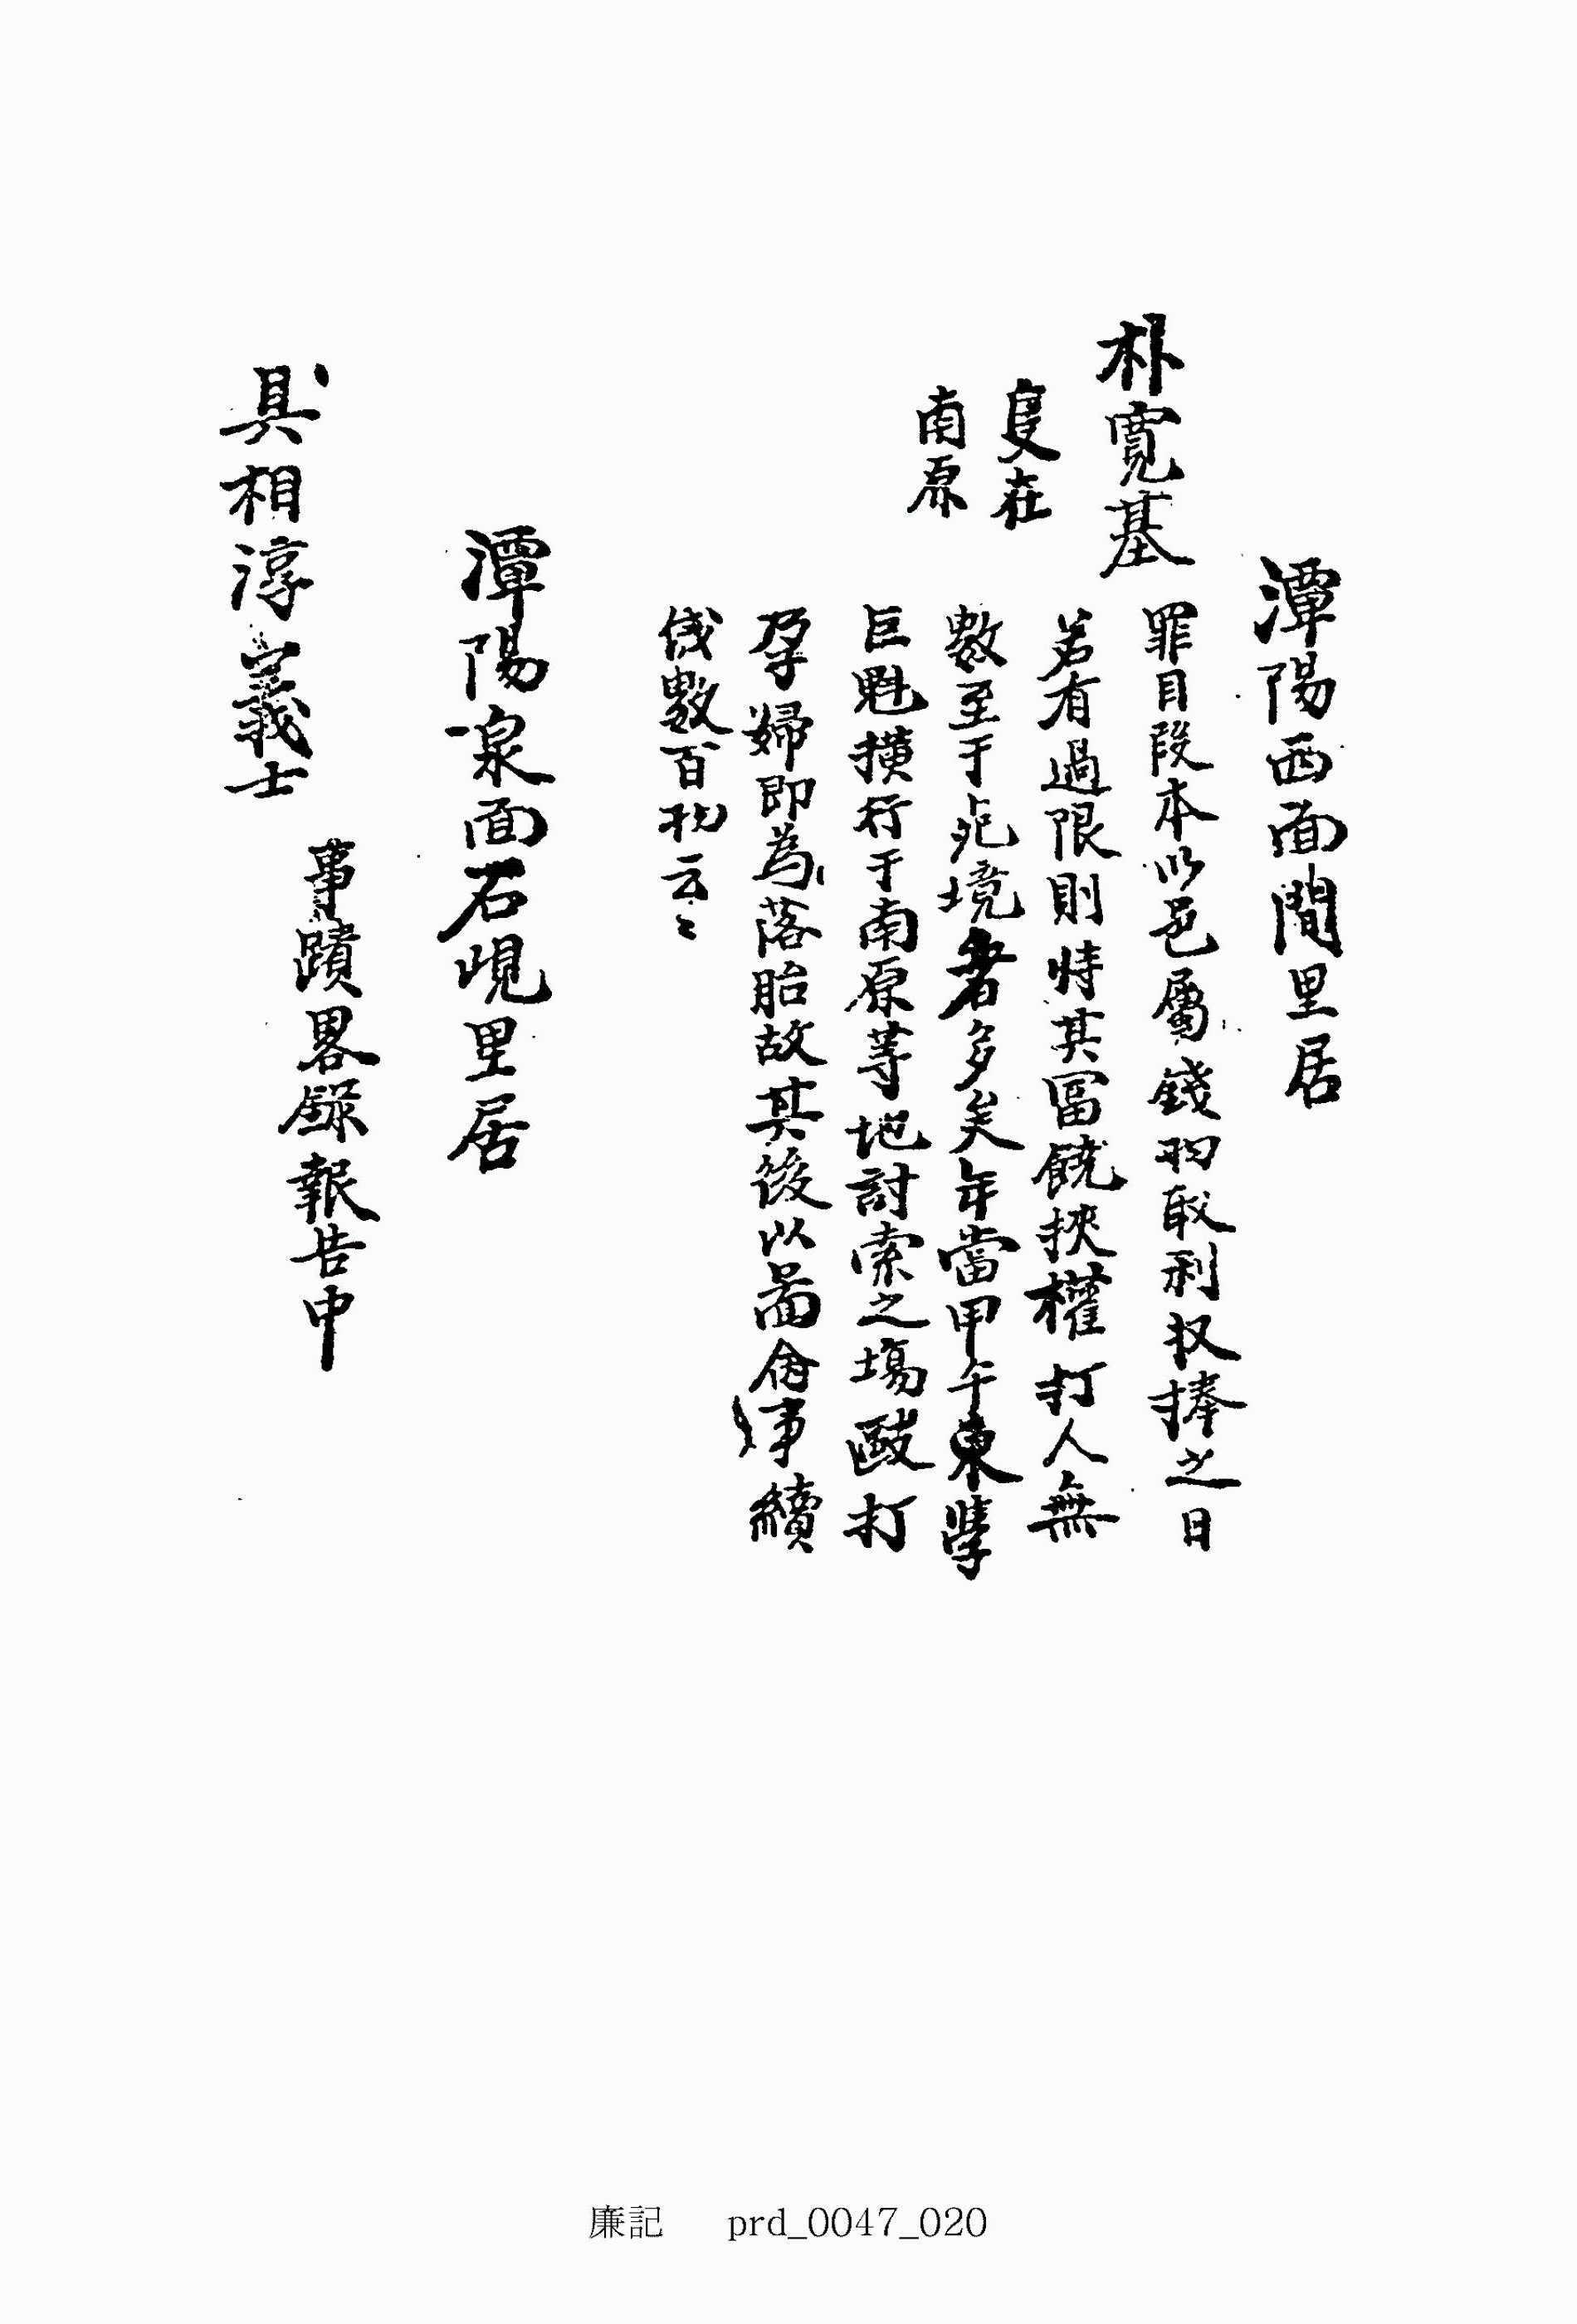 潭陽西面閒里居
朴寬基
隻在
南原
罪目段本以邑屬錢兩取利収捧之日
若有過限則恃其冨饒挾權打人無
數至于死境者多矣年當甲午東學
巨魁橫行于南原等地討索之塲毆打
孕婦即為落胎故其後以啚命事續
錢數百兩云〻
潭陽泉面石峴里居
具相淳義士
事蹟畧錄報告申
廉記 prd_0047_020